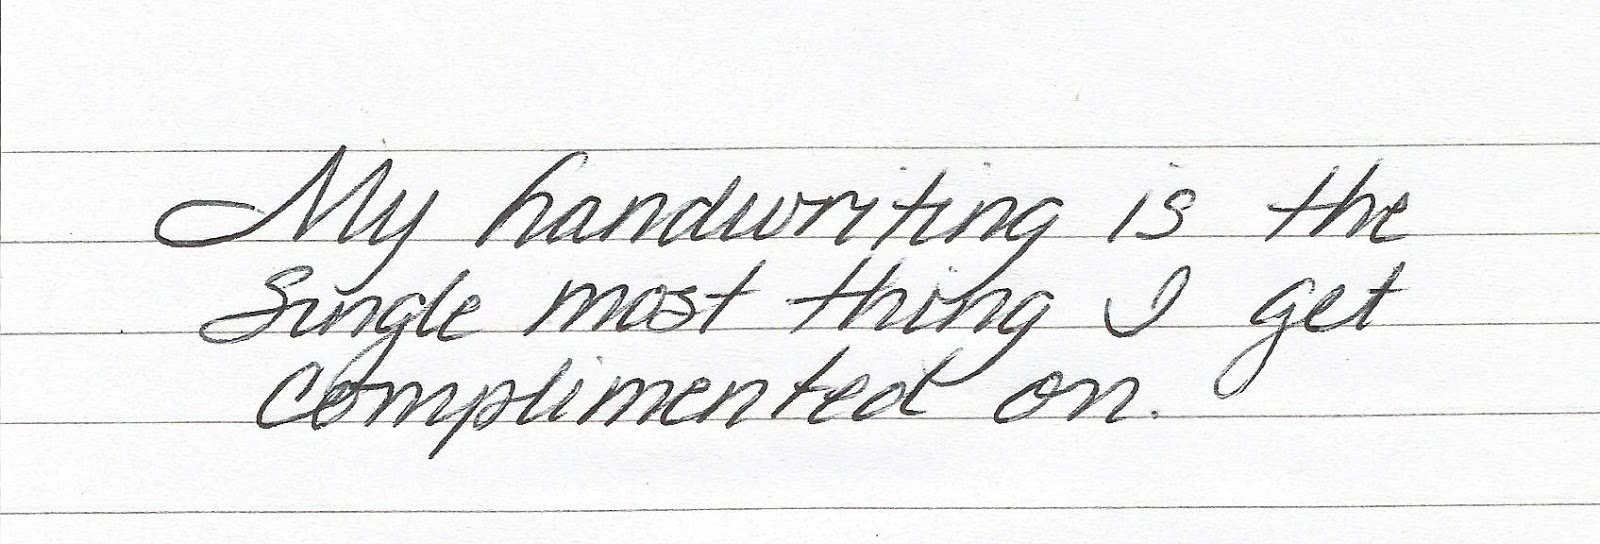 My handwriting is the
single most thing I get
complimented on.